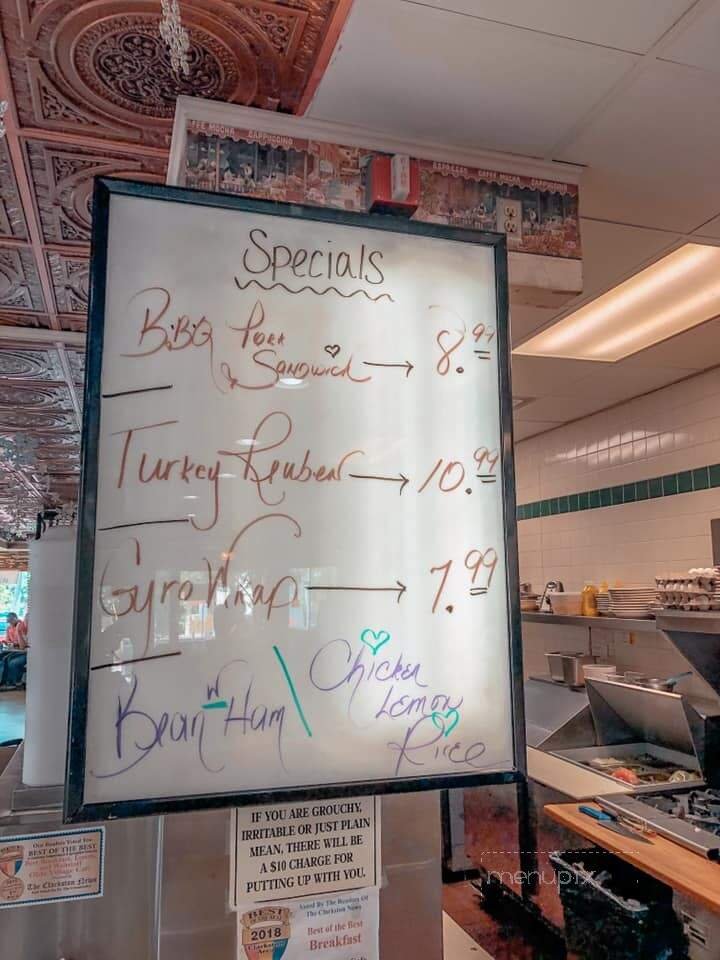 CAFFE MOCHA CAPPUCCINO
ESPRESSO CAFFE MOCHA CAPPUCCINO
Specials
B.B.Q Pork
& Sandwich → 8.99
Turkey Reuben → 10.99
Gyro Wrap → 7.99
Bean w Ham \ Chicken
Lemon
Rice
IF YOU ARE GROUCHY,
IRRITABLE OR JUST PLAIN
MEAN, THERE WILL BE
A $10 CHARGE FOR
PUTTING UP WITH YOU.
BEST OF THE BEST
The Clarkston News
Voted By The Readers Of
The Clarkston News
BEST
2018
Clarkston
Area
Best of the Best
Breakfast
menupix